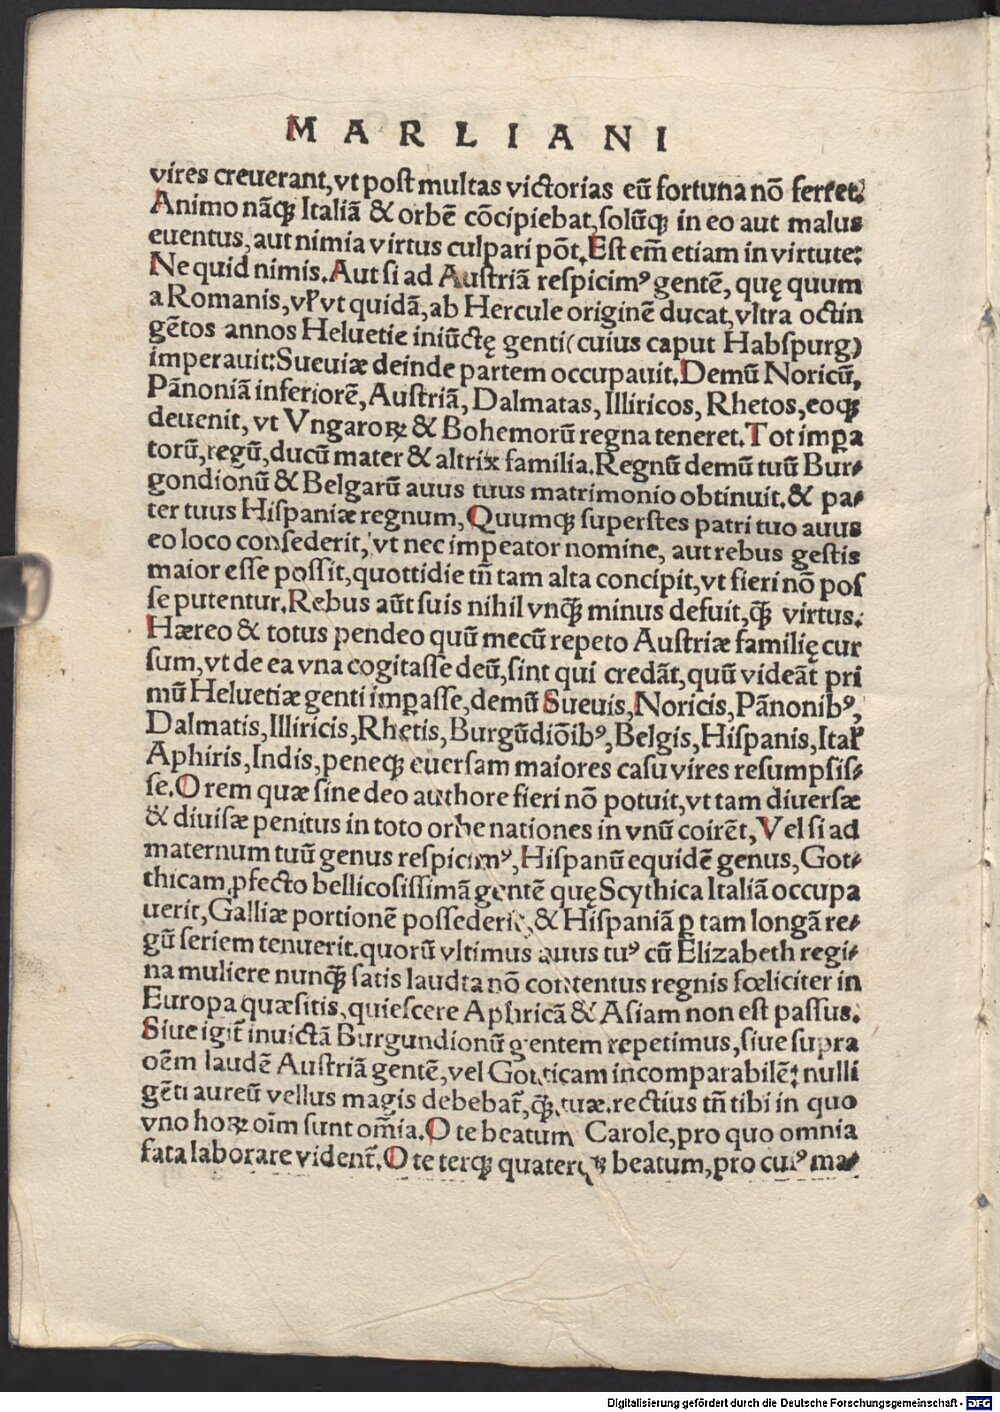 MARLIANI
vires creuerant,vt post multas victorias eū fortuna nō ferret.
Animo nāqꝫ Italiā & orbē cōcipiebat,solūqꝫ in eo aut malus
euentus,aut nimia virtus culpari pōt.Est em̄ etiam in virtute:
Ne quid nimis.Aut si ad Austriā respicimꝰ gentē, quę quum
a Romanis,vl̕ vt quidā,ab Hercule originē ducat,vltra octin
gētos annos Heluetie iniūctę genti(cuius caput Habspurg)
imperauit:Sueuiæ deinde partem occupauit.Demū Noricū,
Pānoniā inferiorē,Austriā,Dalmatas,Illiricos,Rhetos,eoqꝫ
deuenit,vt Vngaroꝝ & Bohemorū regna teneret.Tot imꝑa
torū,regū,ducū mater & altrix familia.Regnū demū tuū Bur⸗
gondionū & Belgarū auus tuus matrimonio obtinuit.& pa⸗
ter tuus Hispaniæ regnum,Quumqꝫ superstes patri tuo auus
eo loco consederit,vt nec impeator nomine, aut rebus gestis
maior esse possit,quottidie tn̄ tam alta concipit,vt fieri nō pos
se putentur.Rebus aūt suis nihil vnqꝫ̄ minus defuit,qꝫ̄ virtus.
Hæreo & totus pendeo quū mecū repeto Austriæ familię cur
sum,vt de ea vna cogitasse deū,sint qui credāt,quū videāt pri
mū Heluetiæ genti imꝑasse,demū Sueuis,Noricis,Pānonibꝰ,
Dalmatis,Illiricis,Rhetis,Burgūdiōibꝰ,Belgis,Hispanis,Ital̕
Aphiris,Indis,peneqꝫ euersam maiores casu vires resumpsis⸗
se.O rem quæ sine deo authore fieri nō potuit,vt tam diuersæ
& diuisæ penitus in toto orbe nationes in vnū coirēt,Vel si ad
maternum tuū genus respicimꝰ,Hispanū equidē genus,Got⸗
thicam,ꝓfecto bellicosissimā gentē quę Scythica Italiā occupa
uerit,Galliæ portionē possederit,& Hispaniā ꝑ tam longā re⸗
gū seriem tenuerit.quorū vltimus auus tuꝰ cū Elizabeth regi⸗
na muliere nunqꝫ̄ satis laudta nō contentus regnis fœliciter in
Europa quæsitis,quiescere Aphricā & Asiam non est passus.
Siue igit̄ inuictā Burgundionū gentem repetimus,siue supra
oēm laudē Austriā gentē,vel Gotticam incomparabilē:nulli
gēti aureū vellus magis debebat̄,qꝫ̄ tuæ.rectius tn̄ tibi in quo
vno hoꝝ oīm sunt om̄ia.O te beatum Carole,pro quo omnia
fata laborare vident̄.O te terqꝫ quaterqꝫ beatum,pro cuiꝰ ma⸗
Digitalisierung gefördert durch die Deutsche Forschungsgemeinschaft - DFG